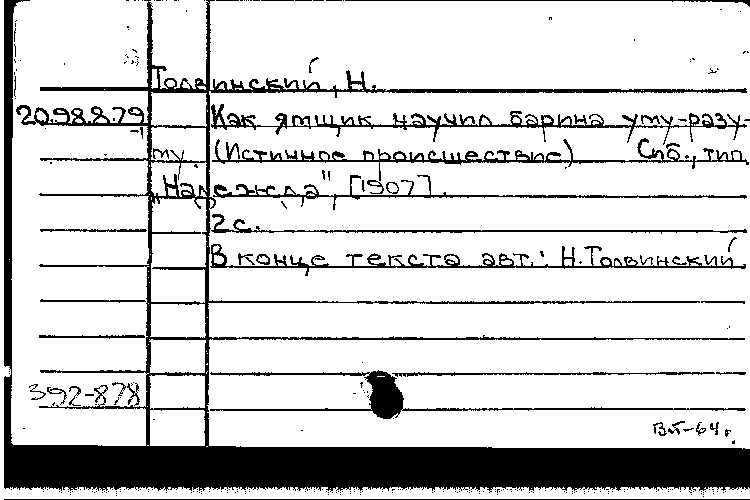 Толвинский, Н.
20.98.8.79 Как ямщик научил барина уму-разу-
му. (Истинное происшествие) Спб., тип.
„Надежда", [1907].
2 с.
В конце текста авт.: Н. Толвинский.
392-878